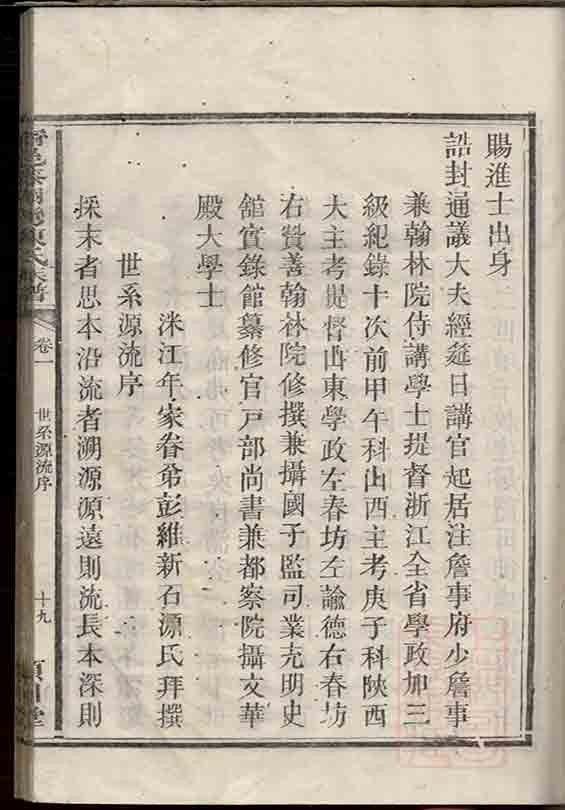 賜進士出身
誥封通議大夫經筵日講官起居注詹事府少詹事
兼翰林院侍講學士提督浙江全省學政加三
級紀錄十次前甲午科山西主考庚子科陝西
大主考提督山東學政左春坊左諭德右春坊
右贊善翰林院修撰兼攝國子監司業充明史
舘實錄館纂修官戸部尚書兼都察院攝文華
殿大學士
洣江年家眷弟彭維新石源氏拜撰
世系源流序
採末者思本沿流者溯源源遠則流長本深則
陳氏族譜
卷一
世系源流序
十九